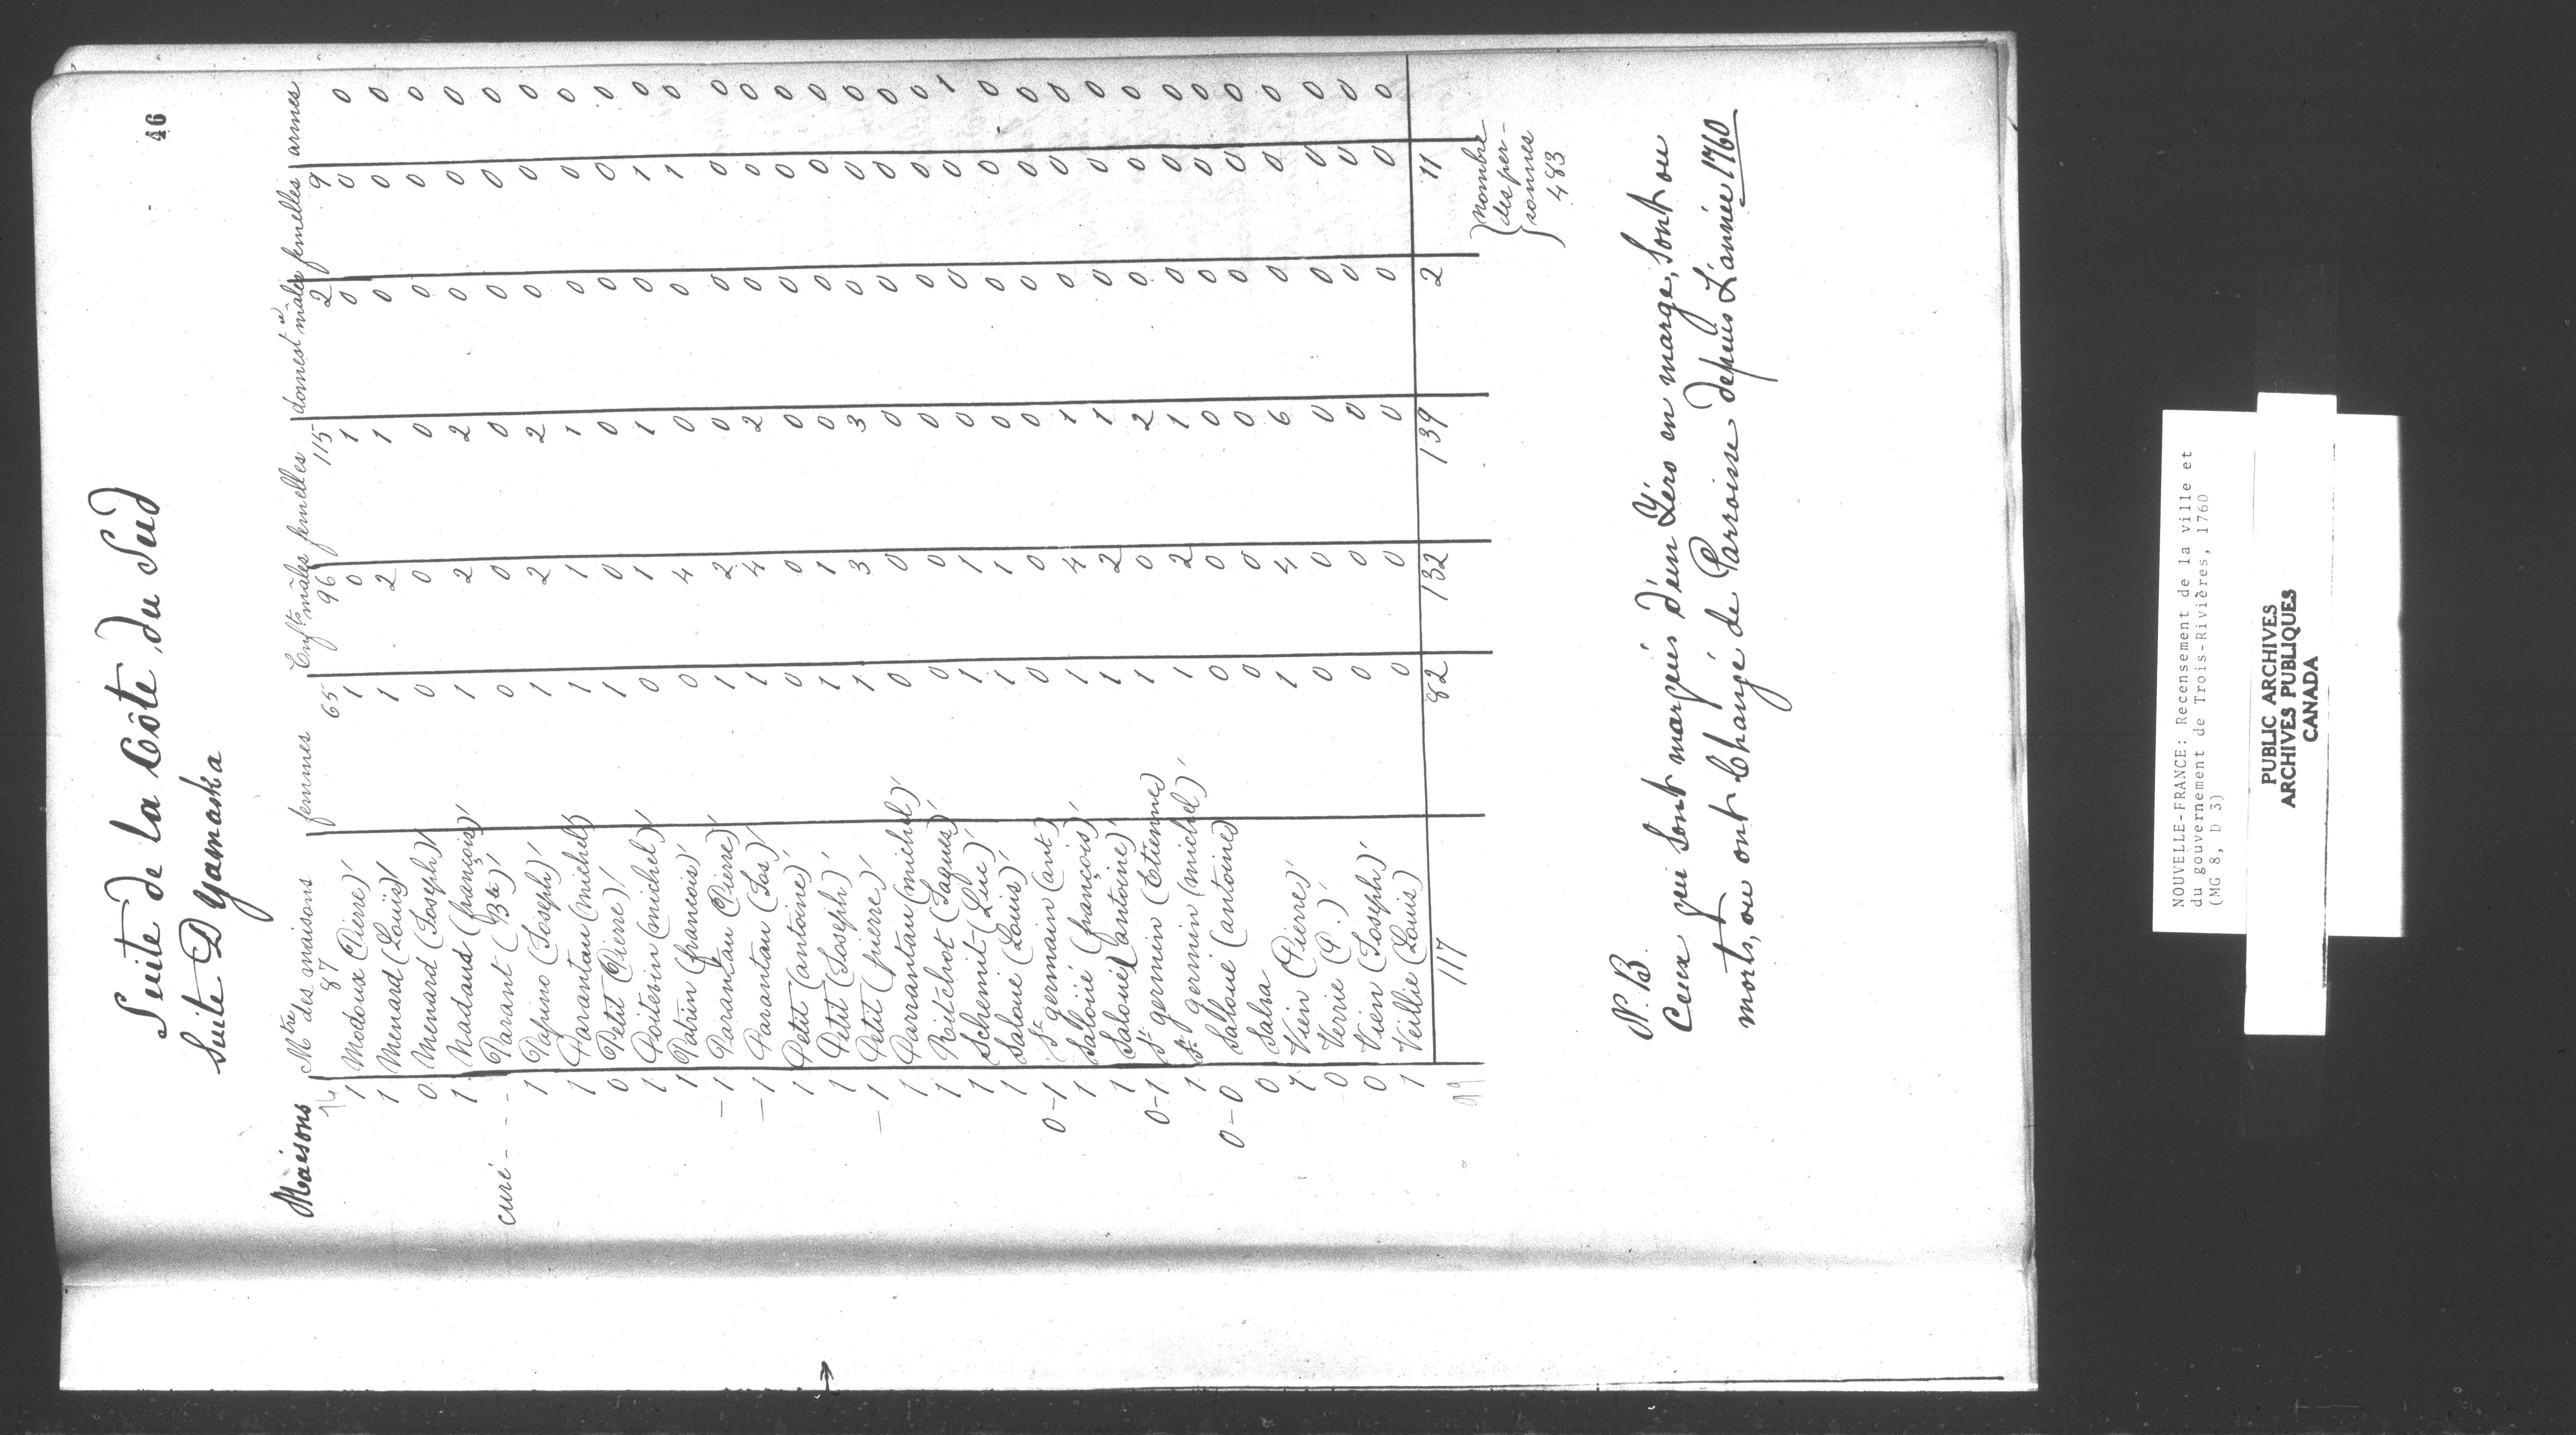 46
Suite de la Côte du Sud
Suite D Yamaska
Maisons Mtre des maisons femmes Enfts mâles femelles domestes mâles femelles armes
87 65 96 115 2 9
1 Modoux (Pierre) 1 0 1 0 0 0
1 Menard (Louis) 1 2 1 0 0 0
0 Menard (Joseph) 0 0 0 0 0 0
1 Nadaud (françois) 1 2 2 0 0 0
curé - - - Parant (Bte) 0 0 0 0 0 0
1 Papino (Joseph) 1 2 2 0 0 0
1 Parantau (michel) 1 1 1 0 0 0
0 Petit (Pierre) 1 0 0 0 0 0
1 Poitevin (michel) 0 1 1 0 1 0
1 Patrin (francois) 0 4 0 0 1 0
– 1 Parantau (Pierre) 1 2 0 0 0 0
– 1 Parantau (Jos) 1 4 2 0 0 0
1 Petit (antoine) 0 0 0 0 0 0
1 Petit (Joseph) 1 1 0 0 0 0
– 1 Petit (pierre) 1 3 3 0 0 0
1 Parrantau (michel) 0 0 0 0 0 0
1 Roitchot (Jaques) 0 0 0 0 0 1
1 Schemit (Luc) 1 1 0 0 0 0
1 Saloué (Louis) 1 1 0 0 0 0
0 – 1 St germain (ant) 0 0 0 0 0 0
1 Saloüé (françois) 1 4 1 0 0 0
1 Saloué (antoine) 1 2 1 0 0 0
0 – 1 St germin (Etienne) 1 0 2 0 0 0
1 St germin (michel) 1 2 1 0 0 0
0 – 0 Saloué (antoine) 0 0 0 0 0 0
0 Salra 0 0 0 0 0 0
1 Vien (Pierre) 1 4 6 0 0 0
0 Verrie (P.) 0 0 0 0 0 0
0 Vien (Joseph) 0 0 0 0 0 0
1 Veillie (Louis) 0 0 0 0 0 0
117 82 132 139 2 11
nombre
des per-
sonnes
483
N.B.
Ceux qui Sont margués d'un Zéro en marge, Sont ou
morts, ou ont Changé de Parroisse depuis L'année 1760
NOUVELLE-FRANCE: Recensement de la ville et
du gouvernement de Trois-Rivières, 1760
(MG 8, D 3)
PUBLIC ARCHIVES
ARCHIVES PUBLIQUES
CANADA